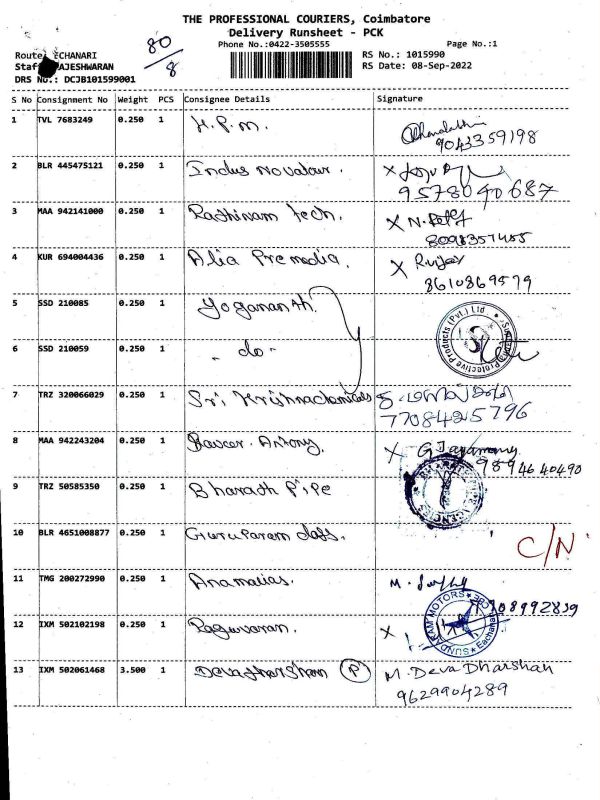 THE PROFESSIONAL COURIERS, Coimbatore
Delivery Runsheet - PCK
80/8
Phone No.:0422-3505555 Page No.:1
Route ECHANARI RS No.: 1015990
Staf AJESHWARAN RS Date: 08-Sep-2022
DRS No.: DCJB101599001
S No Consignment No Weight PCS Consignee Details Signature
1 TVL 7683249 0.250 1 H.P.M.
9043359198
2 BLR 445475121 0.250 1 Indus Novateur. X
9578040687
3 MAA 942141000 0.250 1 Rathinam Tech. X N.
8098357485
4 KUR 694004436 0.250 1 Alia Premedia. X Ruijay
8610869579
5 SSD 210085 0.250 1 Yogananth.
Protective Products (Pvt.) Ltd
6 SSD 210059 0.250 1 - do -
7 TRZ 320066029 0.250 1 Sri Krishnachemicals
7708425796
8 MAA 942243204 0.250 1 Antony. X G Jayamany
9894640490
9 TRZ 50585350 0.250 1 Bharath Pipe
10 BLR 4651008877 0.250 1 Guruparam C/N
11 TMG 200272990 0.250 1 Anamalias. M.
7708992839
12 IXM 502102198 0.250 1 Raguvaran. X
SUNDARAM MOTORS Eachanari
13 IXM 502061468 3.500 1 Devadharshan (P) M. Deva Dharshan
9629904289